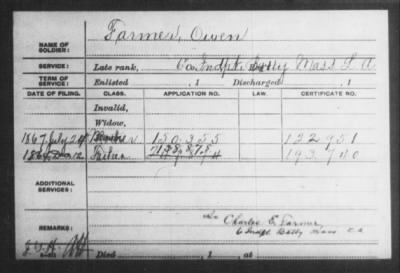 Farmer, Owen
NAME OF SOLDIER:
SERVICE: Late rank, Co. 6 Indpt. Batty Mass L A
TERM OF SERVICE: Enlisted , 1 Discharged , 1
DATE OF FILING. CLASS. APPLICATION NO. LAW. CERTIFICATE NO.
Invalid,
Widow,
1867 July 24 Mother 150.355 122951
Father 193.740
ADDITIONAL SERVICES:
REMARKS: Charles E. Farmer
6 Indpt. Batty Mass L A
Died , 1 , at